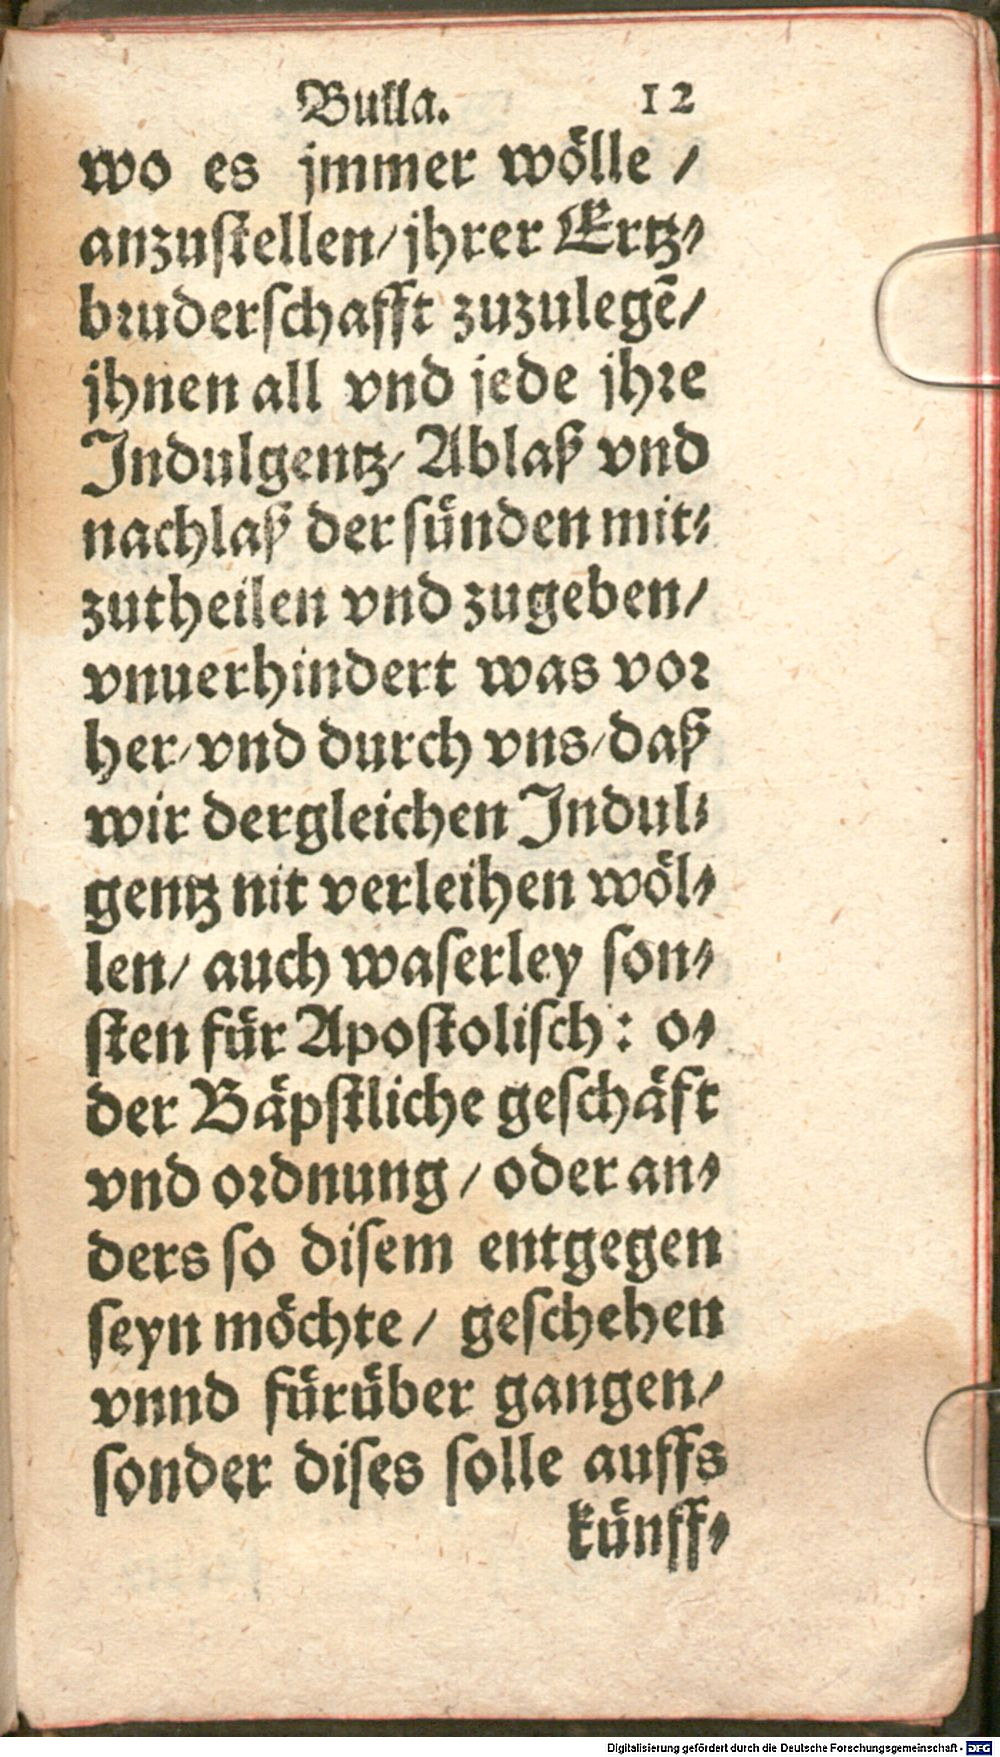 Bulla. 12
wo es jmmer wölle /
anzuſtellen/ jhrer Ertz⸗
bruderſchafft zuzulegē/
jhnen all vnd jede jhre
Indulgentz/ Ablaß vnd
nachlaß der ſünden mit⸗
zutheilen vnd zugeben/
vnuerhindert was vor
her/ vnd durch vns/ daß
wir dergleichen Indul⸗
gentz nit verleihen wöl⸗
len/ auch waſerley ſon⸗
ſten für Apoſtoliſch: o⸗
der Bäpſtliche geſchäft
vnd ordnung / oder an⸗
ders ſo diſem entgegen
ſeyn möchte / geſchehen
vnnd fürüber gangen/
ſonder diſes ſolle auffs
künff⸗
Digitalisierung gefördert durch die Deutsche Forschungsgemeinschaft - DFG